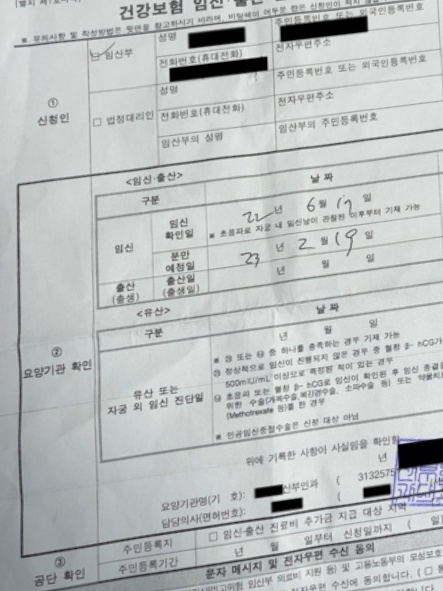 [별지 제1호
건강보험 임신·출산
※ 유의사항 및 작성방법은 뒷면을 참고하시기 바라며, 바탕색이 어두운 란은 신청인이 적지
① 신청인
☑ 임산부
성명
주민등록번호 또는 외국인등록번호
전화번호(휴대전화)
전자우편주소
□ 법정대리인
성명
주민등록번호 또는 외국인등록번호
전화번호(휴대전화)
전자우편주소
임산부의 성명
임산부의 주민등록번호
② 요양기관 확인
<임신·출산>
구분
날 짜
임신
임신 확인일
22년 6월 17일
※ 초음파로 자궁 내 임신낭이 관찰된 이후부터 기재 가능
분만 예정일
23년 2월 19일
출산 (출생)
출산일 (출생일)
년 월 일
<유산>
구분
날 짜
유산 또는 자궁 외 임신 진단일
년 월 일
※ ㉮ 또는 ㉯ 중 하나를 충족하는 경우 기재 가능
㉮ 정상적으로 임신이 진행되지 않은 경우 중 혈청 β- hCG가
500mIU/mL 이상으로 측정된 적이 있는 경우
㉯ 초음파 또는 혈청 β- hCG로 임신이 확인된 후 임신 종결을
위한 수술(개복수술,복강경수술, 소파수술 등) 또는 약물치
(Methotrexate 등)를 한 경우
※ 인공임신중절수술은 신청 대상 아님
위에 기록한 사항이 사실임을 확인함
년
요양기관명(기 호):
산부인과 ( 3132575
담당의사(면허번호):
(
③ 공단 확인
주민등록지
□ 임신·출산 진료비 추가금 지급 대상 지역
주민등록기간
년 월 일부터 신청일까지 ( 일)
문자 메시지 및 전자우편 수신 동의
고위험 임산부 의료비 지원 등) 및 고용노동부의 모성보호
전자우편 수신에 동의합니다. (□ 동